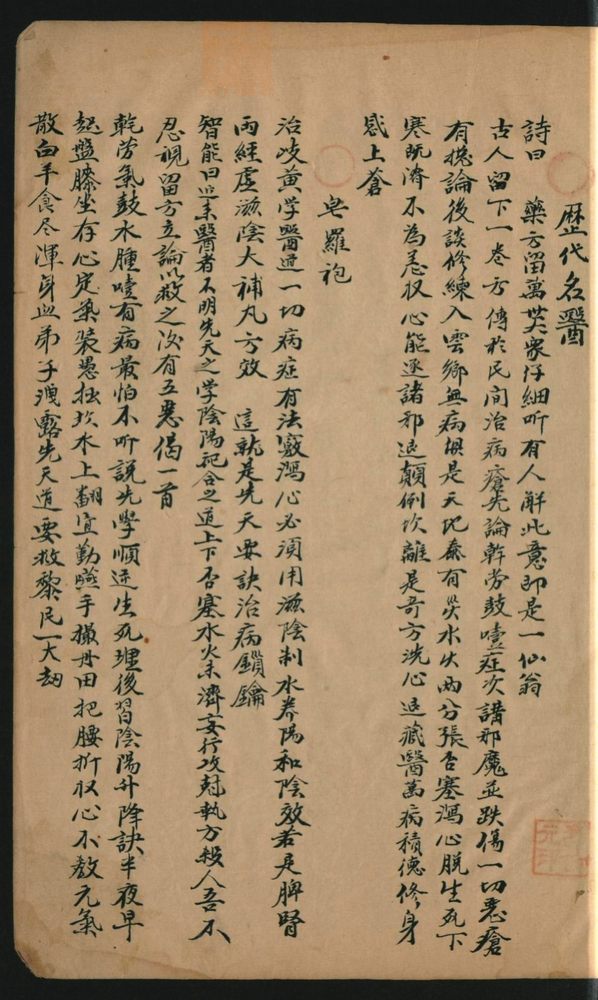 歷代名醫
詩曰　藥方留萬世衆仔細听有人解此意即是一仙翁
古人留下一卷方傳於民間治病瘡先論乾劳鼓噎症次講邪魔並跌傷一切惡瘡
有揔論後談修練入雲鄉無病損是天地泰有災水火兩分張否塞瀉心脱生死下
寒既济不為恙収心能逐諸邪退顛倒坎離是奇方洗心退藏醫萬病積德修身
感上蒼
皂羅袍
治岐黄学醫道一切病症有法竅瀉心必須用滋陰制水养陽和陰效若是脾腎
两經虛滋陰大補丸方效　這就是先天要訣治病鎖鑰
智能曰近来醫者不明先天之学陰陽配合之道上下否塞水火未濟妄行攻尅執方殺人吾不
忍視留方立論以救之汝有五惡偈一首
乾劳氣鼓水腫噎有病最怕不听説先學順逆生死理後習陰陽升降訣半夜早
起盤膝坐存心定氣裝愚拙坎水上翻宜勤嚥手攥丹田把腰折収心不教元氣
散白手食尽渾身血弟子洩露先天道要救黎民一大劫